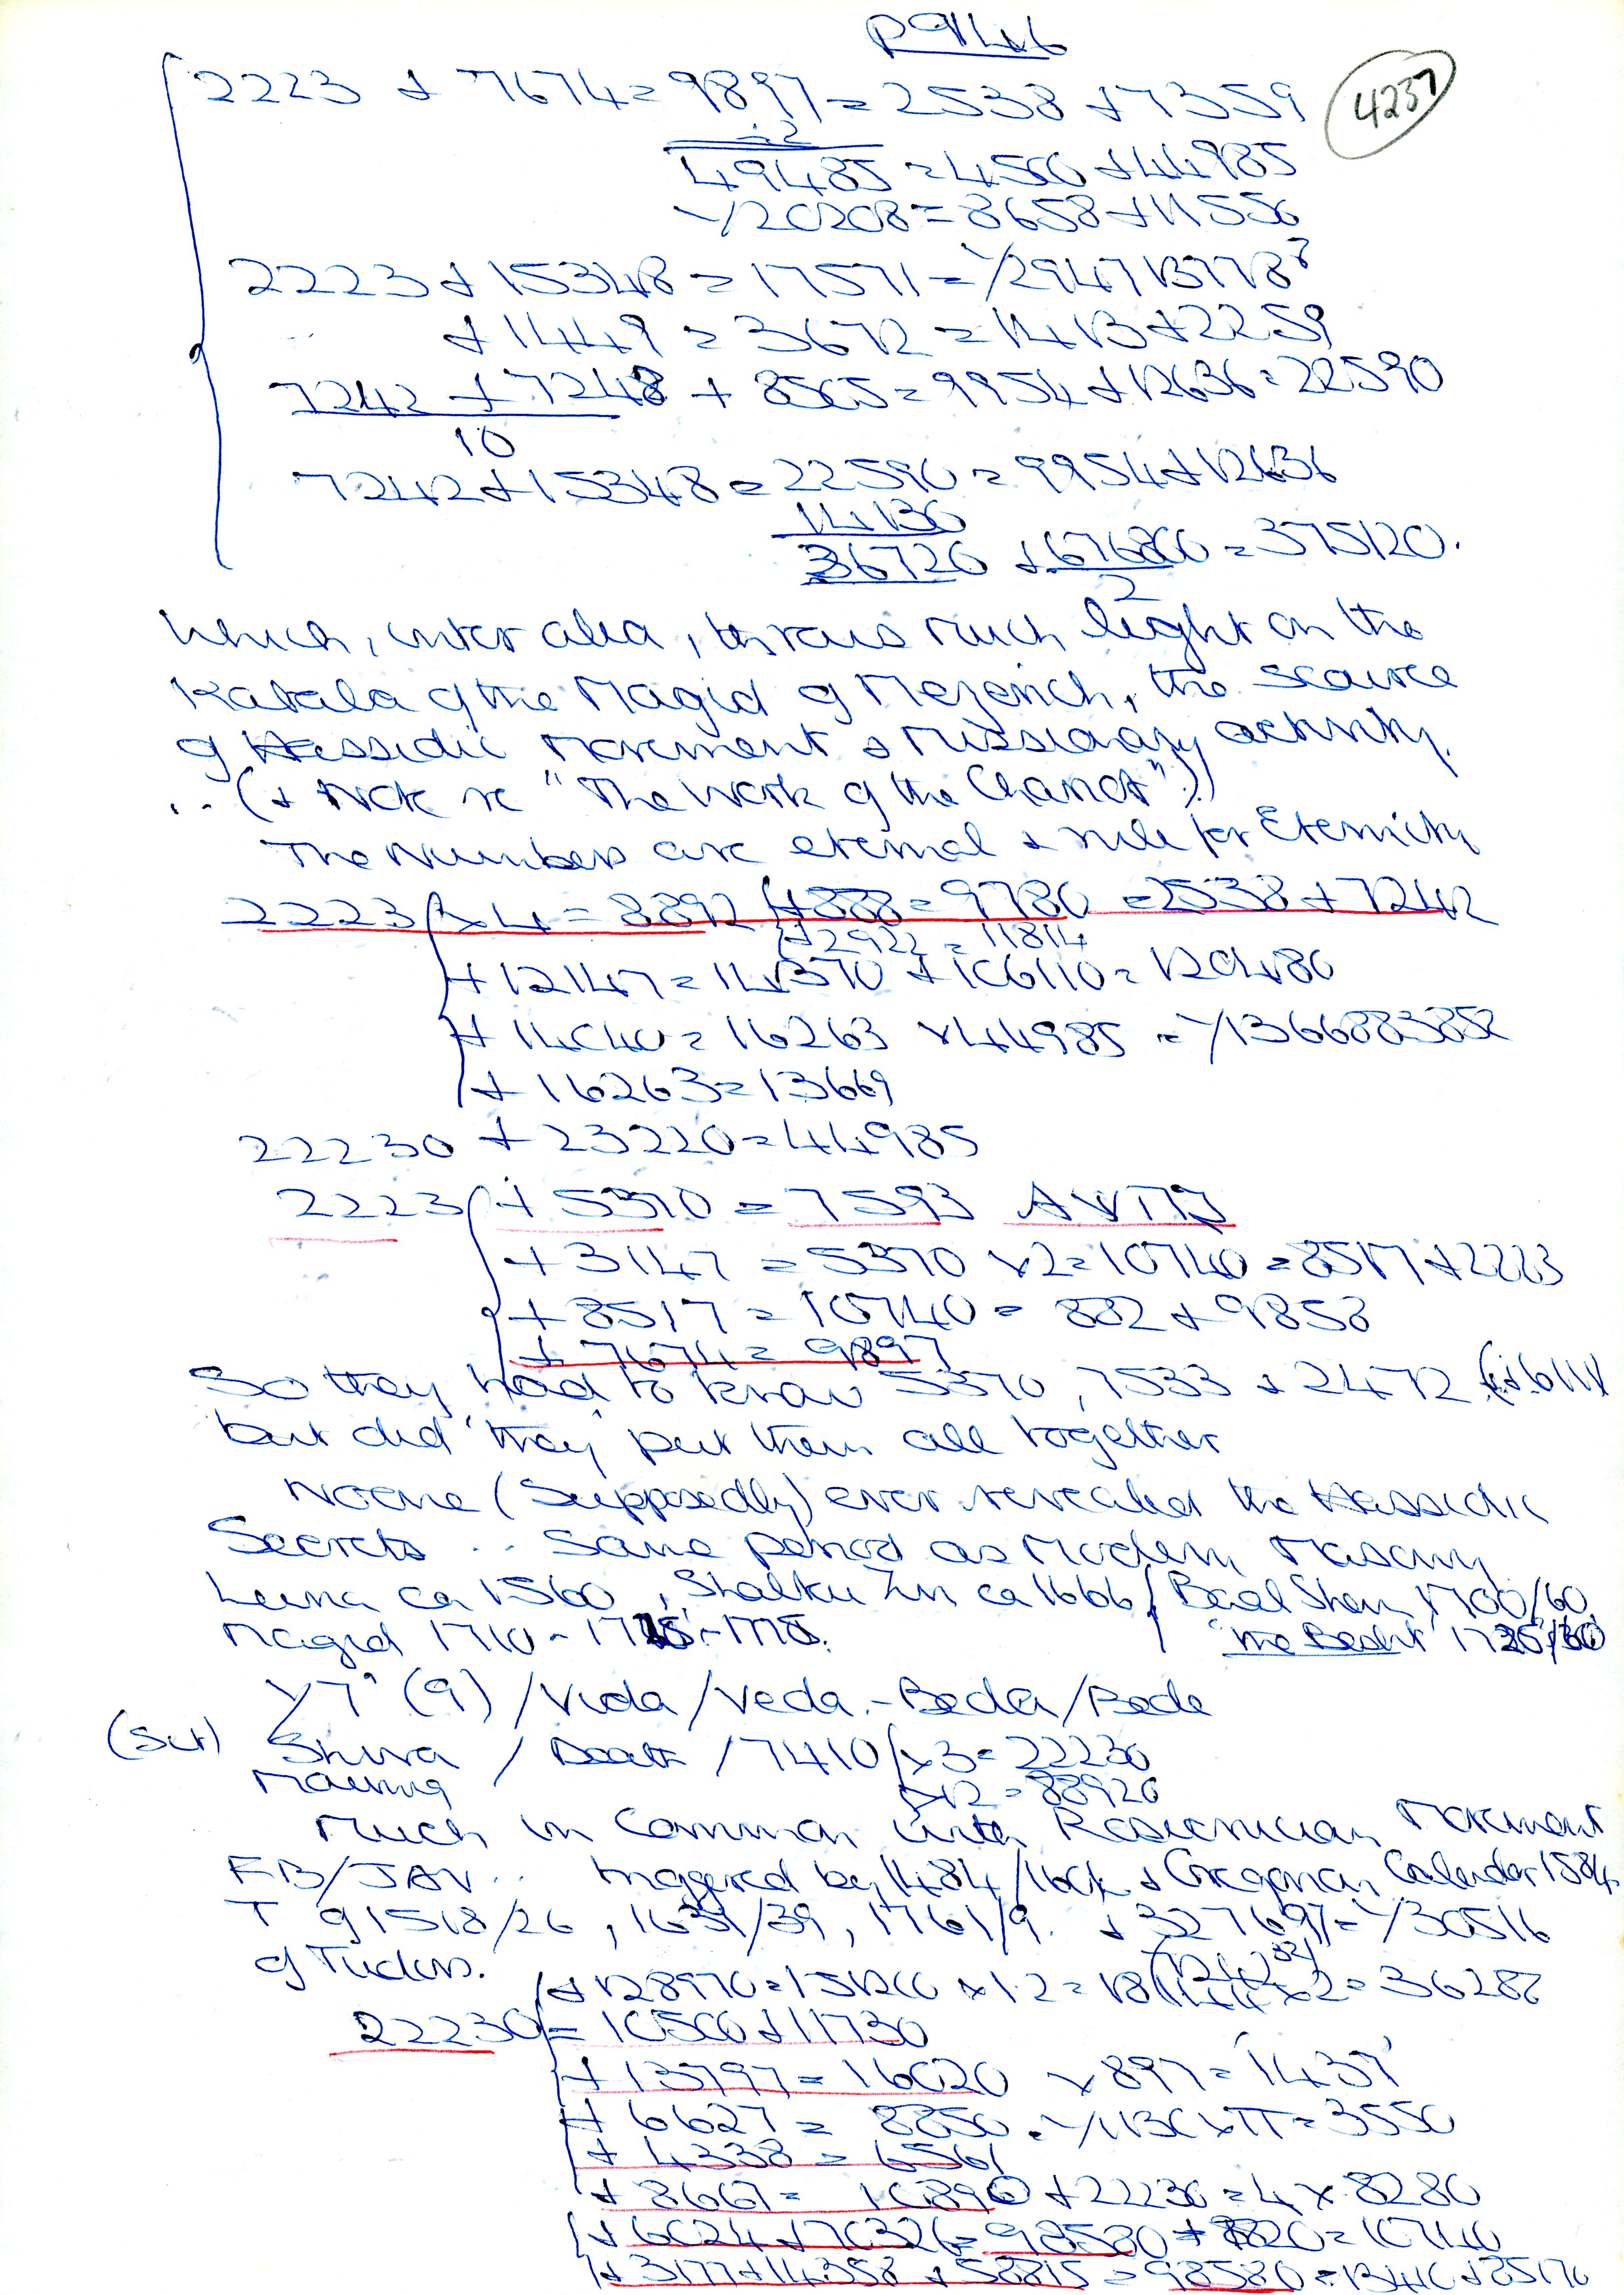 P9146
4237
2223 + 7674 = 9897 = 2538 + 7359
÷2
49485 = 4500 + 44985
√20208 = 8658 + 11556
2223 + 15348 = 17571 =
+ 1449 = 3672 = 1413 + 2259
7242 + 7248 + 8565 = 9954 + 12636 = 22590
10
7242 + 15348 = 22590 = 9954 + 12636
14130
36720 + 676800 = 375120.
2
which, inter alia, throws much light on the
Kabala of the Magid of Mezerich, the source
of Hassidic Movement & Missionary activity.
.. (+ Note re "The Work of the Chariot"))
The Numbers are eternal & rule for Eternity
2223 x 4 = 8892 + 888 = 9780 = 2538 + 7242
+ 2922 = 11814
+ 12147 = 14370 + 106110 = 120480
+ 14040 = 16263 x 44985 = √1366883852
+ 16263 = 13669
22230 + 23220 = 44985
2223 + 5370 = 7593
+ 3147 = 5370 x 2 = 10740 = 8517 + 2223
+ 8517 = 10740 = 882 + 9858
+ 7674 = 9897
So they had to know 5370, 7533 + 2472
but did they put them all together
Noone (Supposedly) ever revealed the Hassidic
Secrets .. Same period as Modern Masonry
Luria ca 1560, ca 1666 / Baal Shem 1700/60
Magid 1710 - "the Besht"
(9) / Vida / Veda - Beda / Bede
Shiva / Death / 7410 x 3 = 22230
x12 = 88920
Much in Common with Rosicrucian Movement
FB/JAV .. triggered by 1484 / & Gregorian Calendar 1584.
T of 1518/26, 1631/39, 1761/9. + 327697 = √30516
of Tudors.
+ 128970 = 151200 x 1.2 = 18144 x 2 = 36288
22230 = 10500 + 11730
+ 13797 = 16020 x 897 = 1437
+ 6627 = 8850 = √1130 x π = 3550
+ 4338 = 6561
+ 8667 = 10890 + 22230 = 4 x 8280
+ 6024 + 70326 = 98580 + 8820 = 107400
+ 3177 + 14358 + 58815 = 98580 = 13410 + 85170